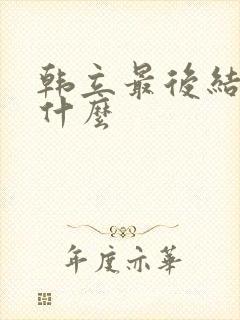 韩立最後結
什麼
年度亦華